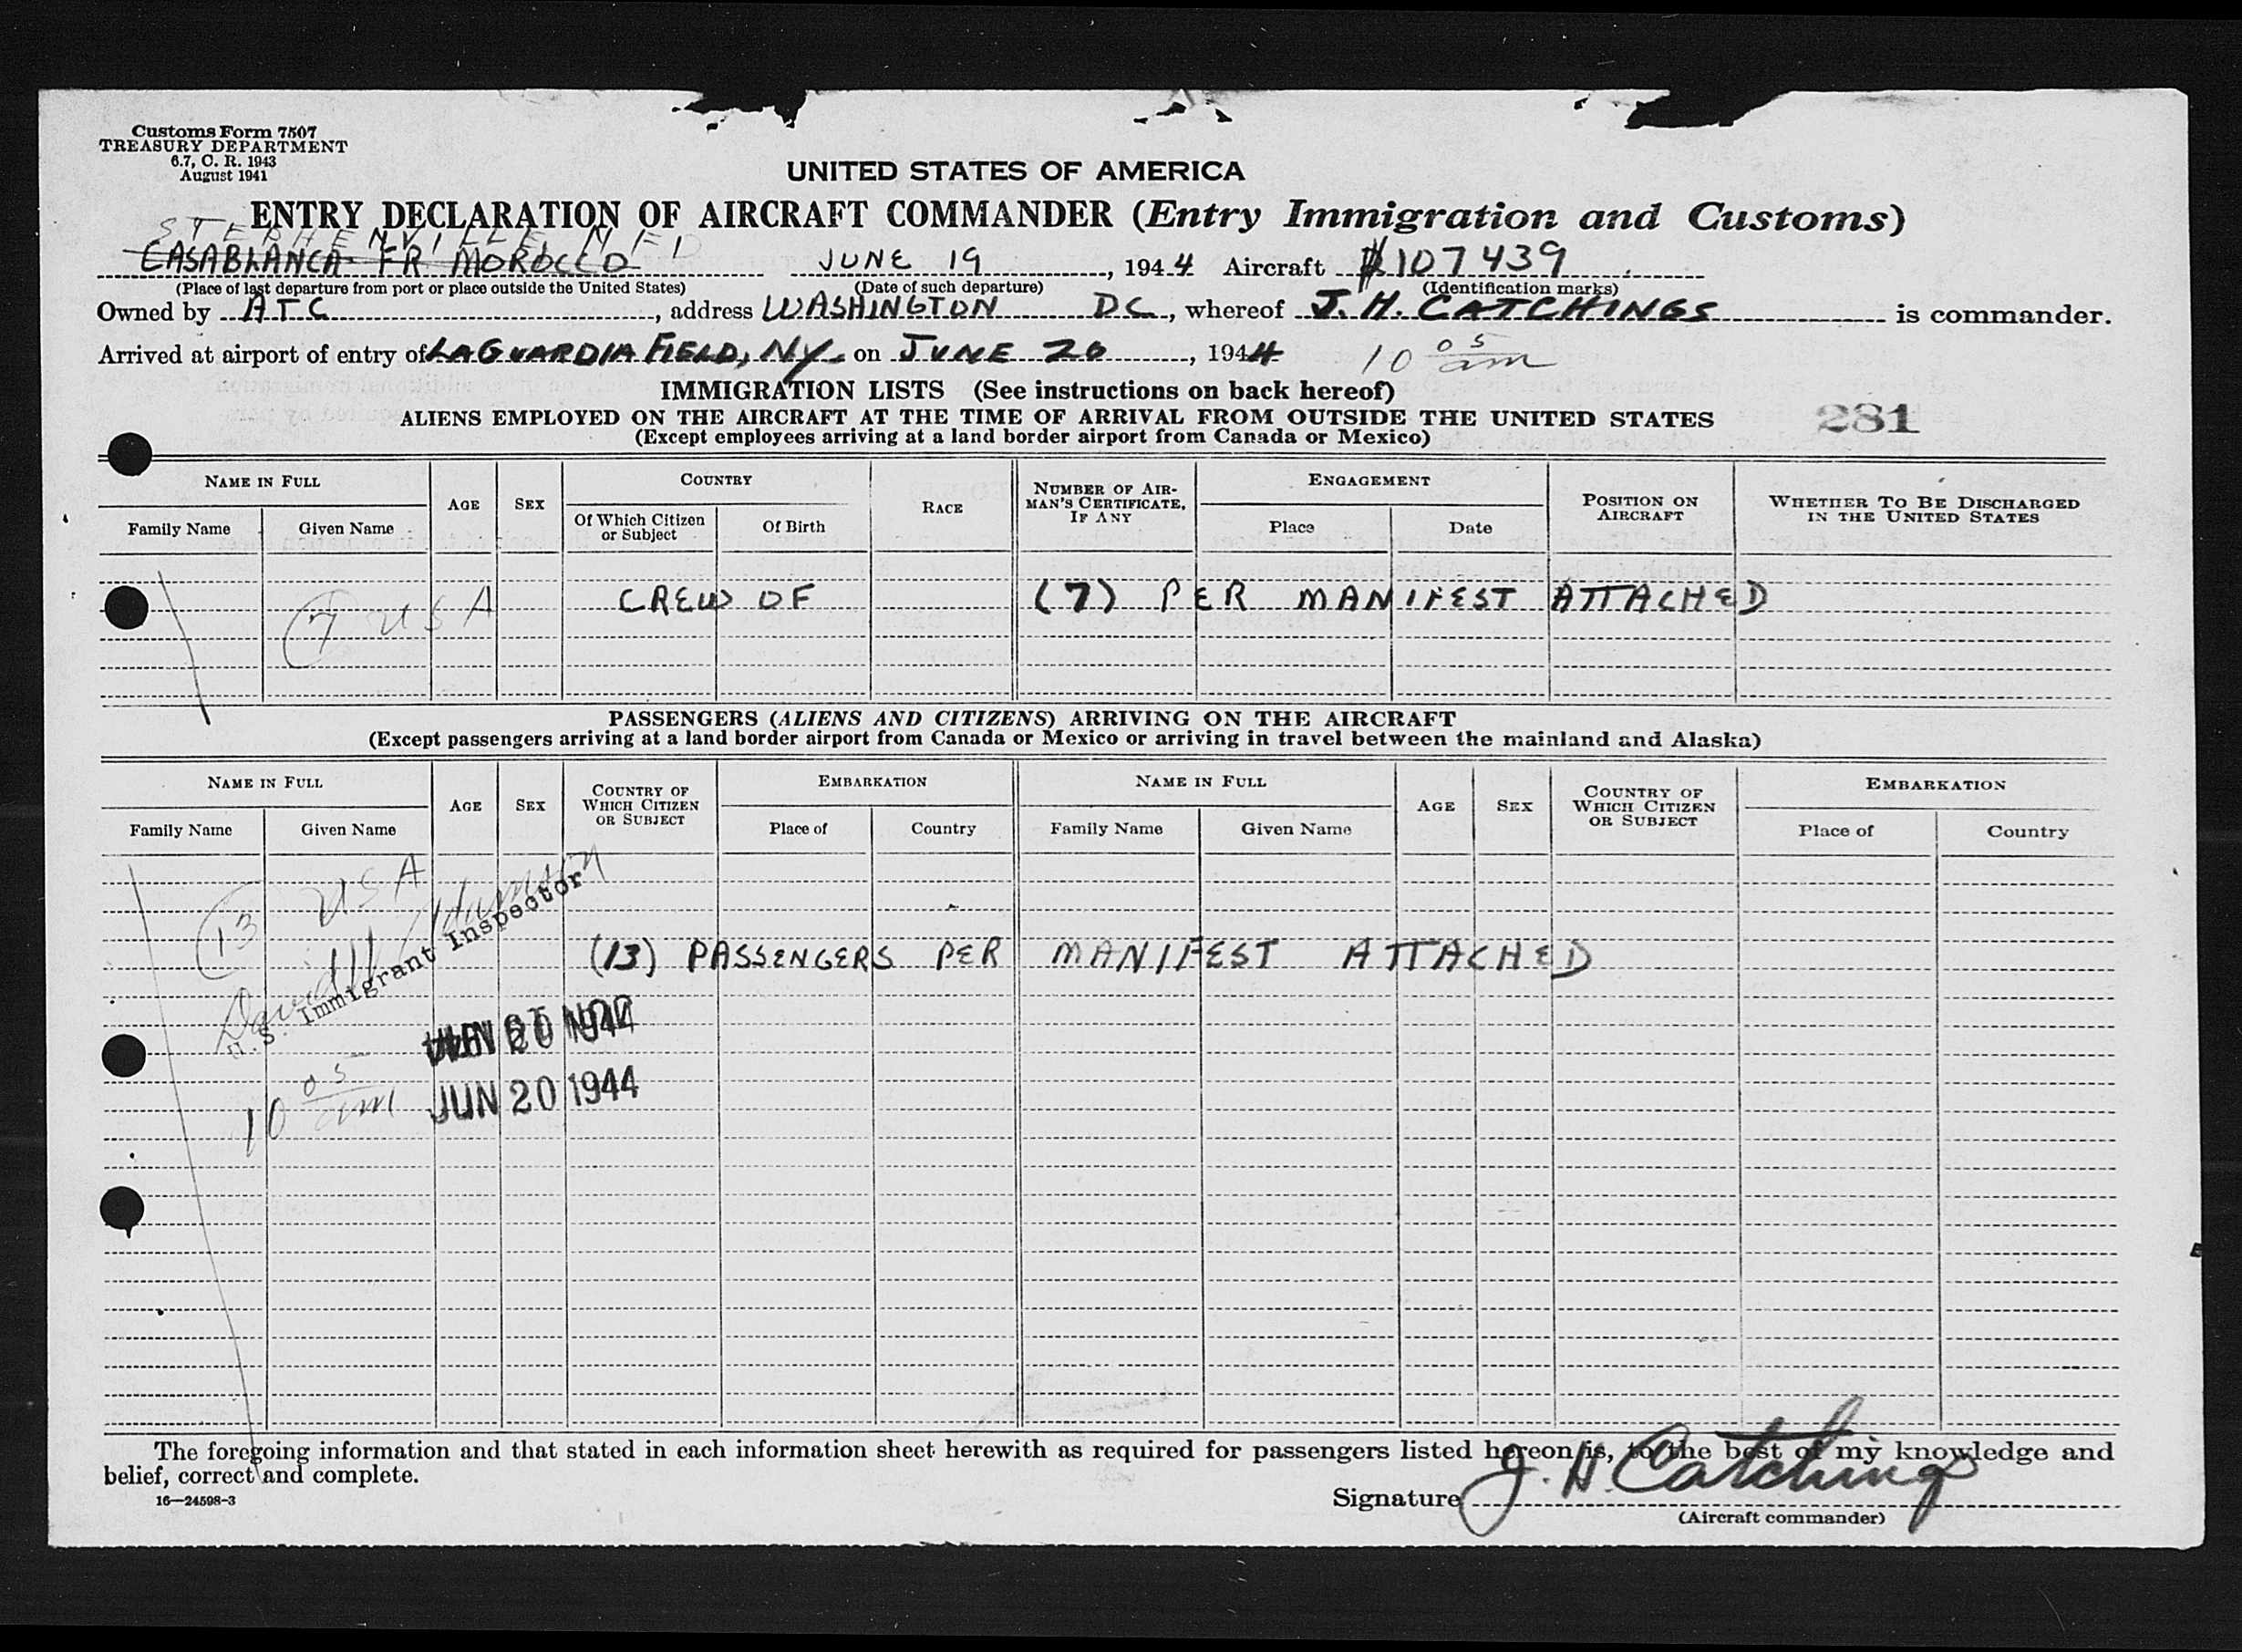 Customs Form 7507
TREASURY DEPARTMENT
6.7, C. R. 1943
August 1941
UNITED STATES OF AMERICA
ENTRY DECLARATION OF AIRCRAFT COMMANDER (Entry Immigration and Customs)
STEPHENVILLE NFD
CASABLANCA FR. MOROCCO JUNE 19, 1944 Aircraft #107439
(Place of last departure from port or place outside the United States) (Date of such departure) (Identification marks)
Owned by ATC, address WASHINGTON DC, whereof J. H. CATCHINGS is commander.
Arrived at airport of entry of LAGUARDIA FIELD, NY on JUNE 20, 1944 10 05 am
IMMIGRATION LISTS (See instructions on back hereof)
ALIENS EMPLOYED ON THE AIRCRAFT AT THE TIME OF ARRIVAL FROM OUTSIDE THE UNITED STATES 281
(Except employees arriving at a land border airport from Canada or Mexico)
NAME IN FULL AGE SEX COUNTRY RACE NUMBER OF AIRMAN'S CERTIFICATE, IF ANY ENGAGEMENT POSITION ON AIRCRAFT WHETHER TO BE DISCHARGED IN THE UNITED STATES
Family Name Given Name Of Which Citizen or Subject Of Birth Place Date
CREW OF (7) PER MANIFEST ATTACHED
7 USA
PASSENGERS (ALIENS AND CITIZENS) ARRIVING ON THE AIRCRAFT
(Except passengers arriving at a land border airport from Canada or Mexico or arriving in travel between the mainland and Alaska)
NAME IN FULL AGE SEX COUNTRY OF WHICH CITIZEN OR SUBJECT EMBARKATION NAME IN FULL AGE SEX COUNTRY OF WHICH CITIZEN OR SUBJECT EMBARKATION
Family Name Given Name Place of Country Family Name Given Name Place of Country
13 USA
(13) PASSENGERS PER MANIFEST ATTACHED
David
U. S. Immigrant Inspector
JUN 20 1944
10 05 am
The foregoing information and that stated in each information sheet herewith as required for passengers listed hereon is, to the best of my knowledge and
belief, correct and complete.
16—24598-3
Signature J. H. Catchings
(Aircraft commander)